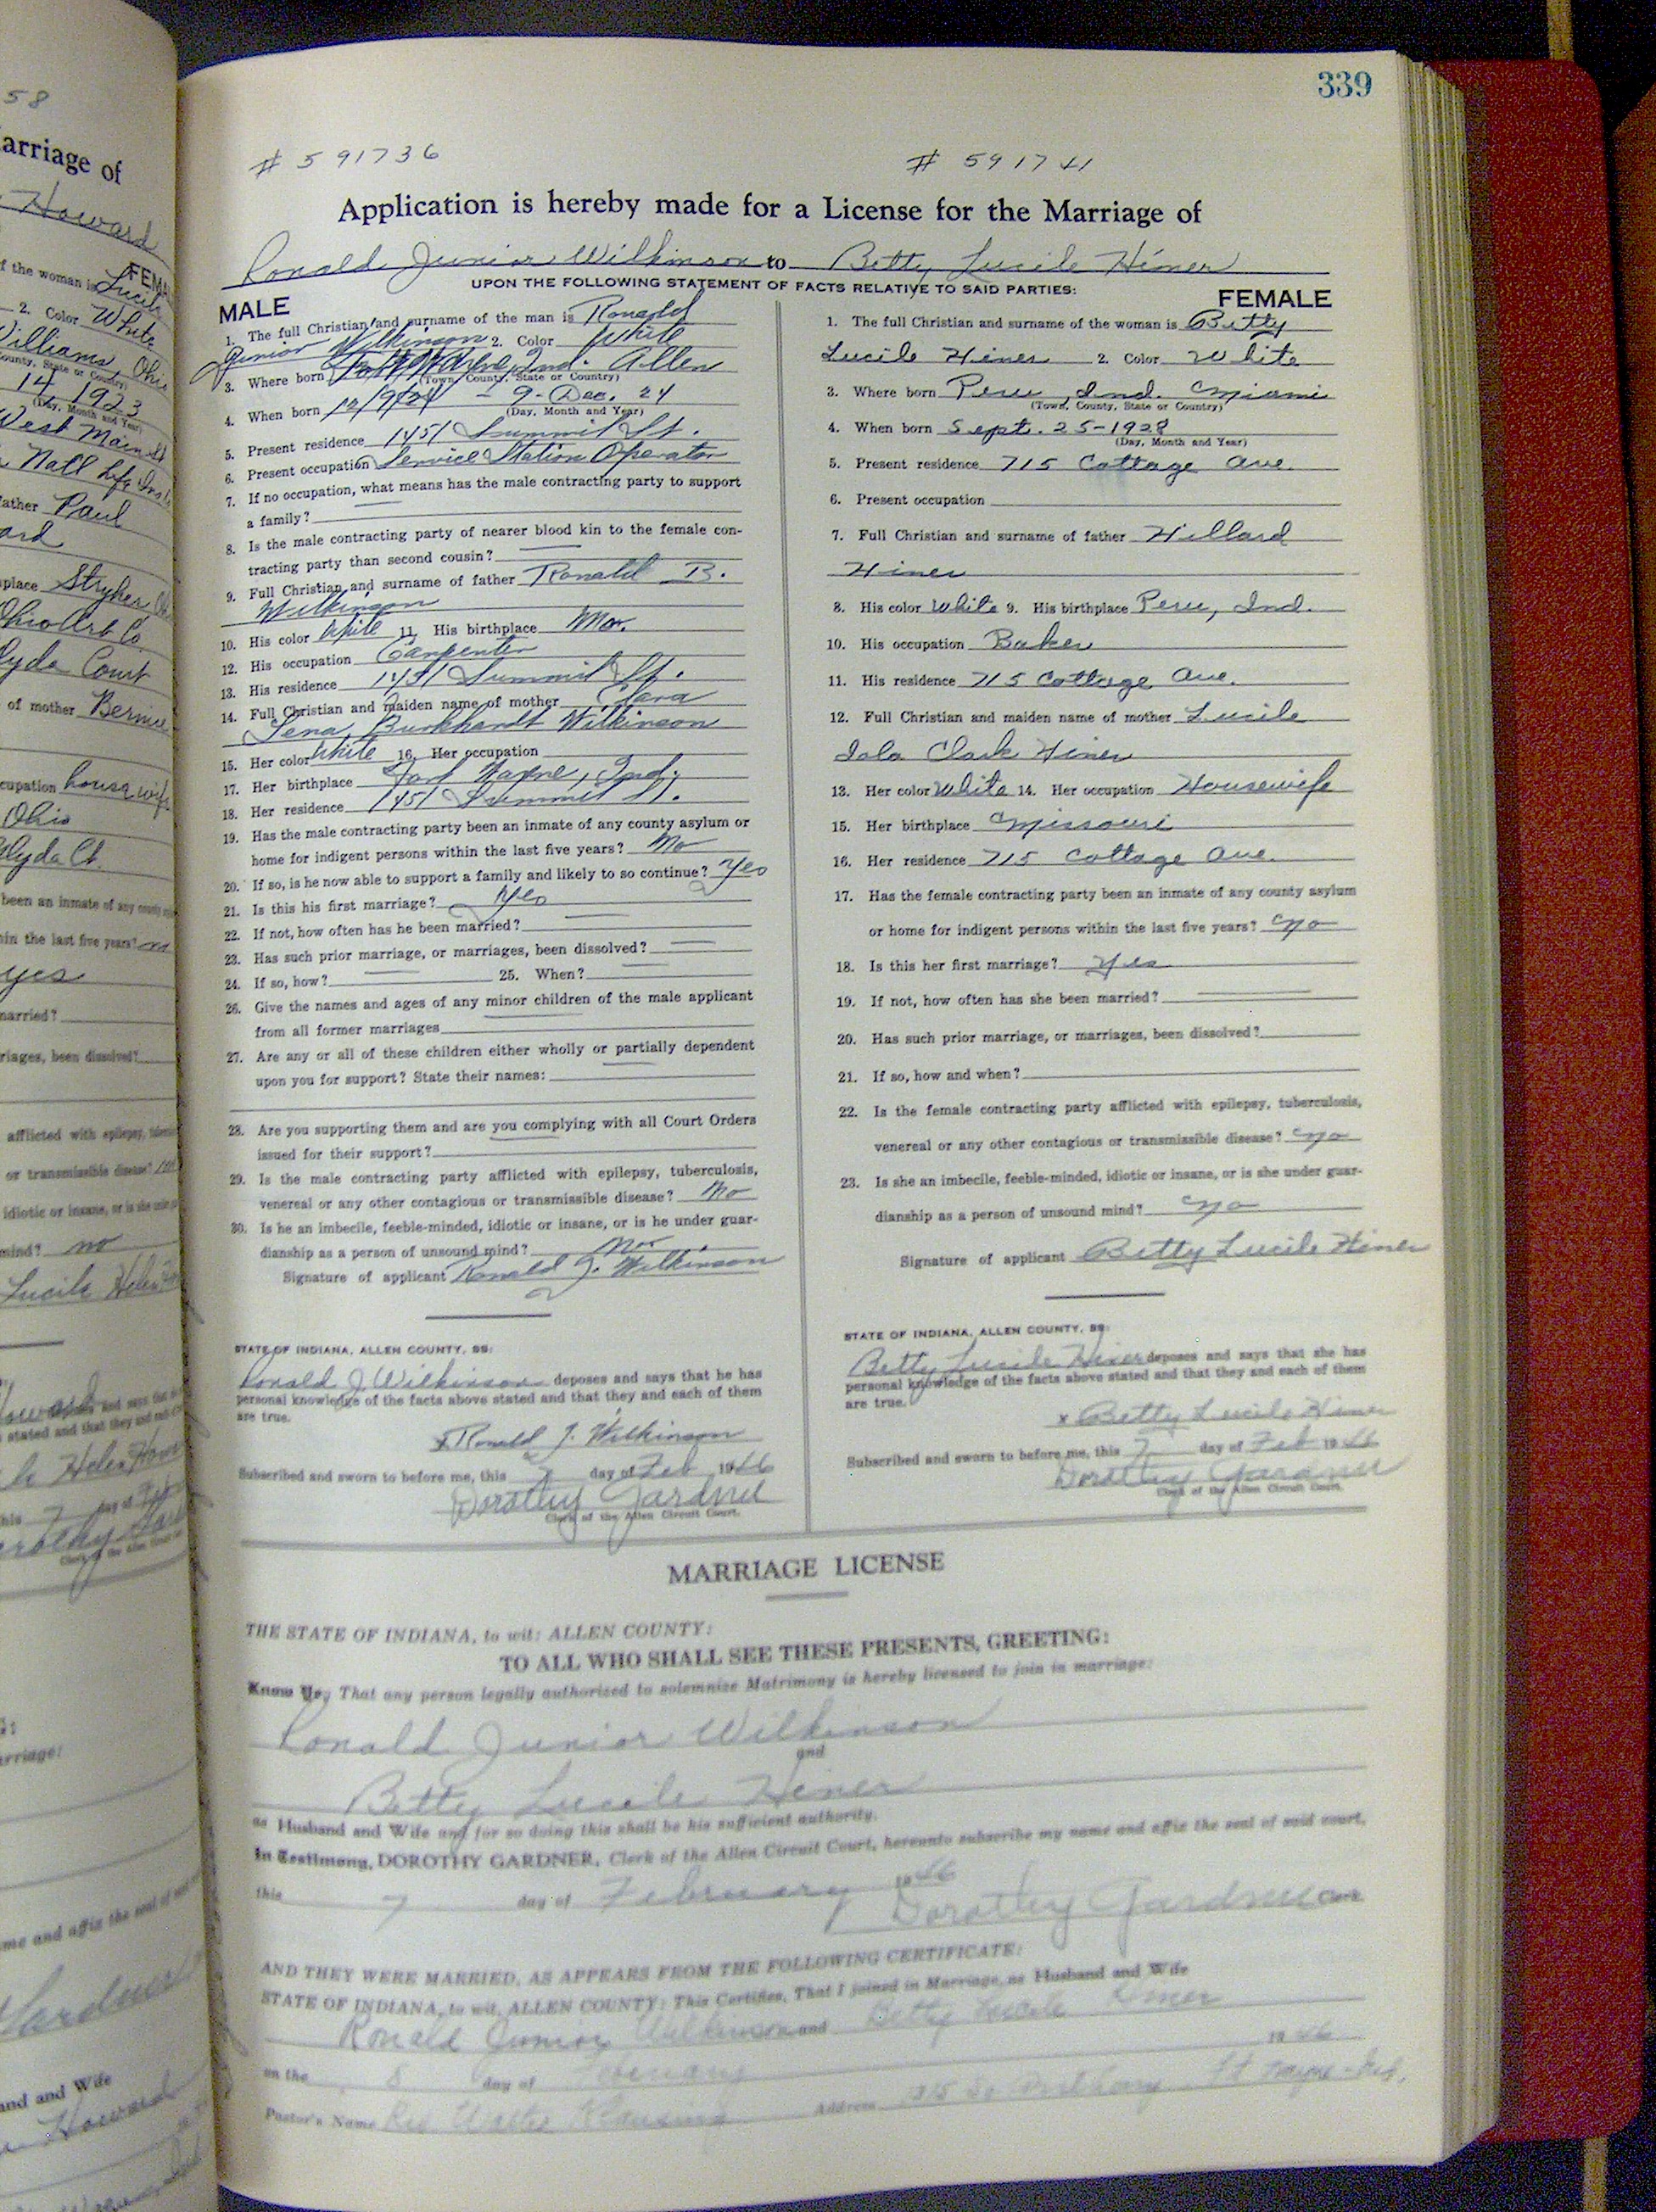 339
# 591736
# 591741
Application is hereby made for a License for the Marriage of
Ronald Junior Wilkinson to Betty Lucile Hiner
UPON THE FOLLOWING STATEMENT OF FACTS RELATIVE TO SAID PARTIES:
MALE
1. The full Christian and surname of the man is Ronald
Junior Wilkinson 2. Color White
3. Where born Fort Wayne, Ind. Allen
(Town, County, State or Country)
4. When born 12/9/24 - 9-Dec. 24
(Day, Month and Year)
5. Present residence 1451 Summit St.
6. Present occupation Service Station Operator
7. If no occupation, what means has the male contracting party to support
a family?
8. Is the male contracting party of nearer blood kin to the female con-
tracting party than second cousin?
9. Full Christian and surname of father Ronald B.
Wilkinson
10. His color White 11. His birthplace Mo.
12. His occupation Carpenter
13. His residence 1451 Summit St.
14. Full Christian and maiden name of mother Clara
Lena Burkhardt Wilkinson
15. Her color White 16. Her occupation
17. Her birthplace Fort Wayne, Ind.
18. Her residence 1451 Summit St.
19. Has the male contracting party been an inmate of any county asylum or
home for indigent persons within the last five years? No
20. If so, is he now able to support a family and likely to so continue? Yes
21. Is this his first marriage? Yes
22. If not, how often has he been married?
23. Has such prior marriage, or marriages, been dissolved?
24. If so, how? 25. When?
26. Give the names and ages of any minor children of the male applicant
from all former marriages
27. Are any or all of these children either wholly or partially dependent
upon you for support? State their names:
28. Are you supporting them and are you complying with all Court Orders
issued for their support?
29. Is the male contracting party afflicted with epilepsy, tuberculosis,
venereal or any other contagious or transmissible disease? No
30. Is he an imbecile, feeble-minded, idiotic or insane, or is he under guar-
dianship as a person of unsound mind? No
Signature of applicant Ronald J. Wilkinson
STATE OF INDIANA, ALLEN COUNTY, SS:
Ronald J Wilkinson deposes and says that he has
personal knowledge of the facts above stated and that they and each of them
are true.
x Ronald J. Wilkinson
Subscribed and sworn to before me, this 7 day of Feb 1946
Dorothy Gardner
Clerk of the Allen Circuit Court.
FEMALE
1. The full Christian and surname of the woman is Betty
Lucile Hiner 2. Color White
3. Where born Peru, Ind. Miami
(Town, County, State or Country)
4. When born Sept. 25-1928
(Day, Month and Year)
5. Present residence 715 Cottage Ave.
6. Present occupation
7. Full Christian and surname of father Hillard
Hiner
8. His color White 9. His birthplace Peru, Ind.
10. His occupation Baker
11. His residence 715 Cottage Ave.
12. Full Christian and maiden name of mother Lucile
Iola Clark Hiner
13. Her color White 14. Her occupation Housewife
15. Her birthplace Missouri
16. Her residence 715 Cottage Ave.
17. Has the female contracting party been an inmate of any county asylum
or home for indigent persons within the last five years? No
18. Is this her first marriage? Yes
19. If not, how often has she been married?
20. Has such prior marriage, or marriages, been dissolved?
21. If so, how and when?
22. Is the female contracting party afflicted with epilepsy, tuberculosis,
venereal or any other contagious or transmissible disease? No
23. Is she an imbecile, feeble-minded, idiotic or insane, or is she under guar-
dianship as a person of unsound mind? No
Signature of applicant Betty Lucile Hiner
STATE OF INDIANA, ALLEN COUNTY, SS:
Betty Lucile Hiner deposes and says that she has
personal knowledge of the facts above stated and that they and each of them
are true.
x Betty Lucile Hiner
Subscribed and sworn to before me, this 7 day of Feb 1946
Dorothy Gardner
Clerk of the Allen Circuit Court.
MARRIAGE LICENSE
THE STATE OF INDIANA, to wit: ALLEN COUNTY:
TO ALL WHO SHALL SEE THESE PRESENTS, GREETING:
Know Ye, That any person legally authorized to solemnize Matrimony is hereby licensed to join in marriage:
Ronald Junior Wilkinson
and
Betty Lucile Hiner
as Husband and Wife and for so doing this shall be his sufficient authority.
In Testimony, DOROTHY GARDNER, Clerk of the Allen Circuit Court, hereunto subscribe my name and affix the seal of said court,
this 7 day of February 1946 Dorothy Gardner Clerk
AND THEY WERE MARRIED, AS APPEARS FROM THE FOLLOWING CERTIFICATE:
STATE OF INDIANA, to wit, ALLEN COUNTY: This Certifies, That I joined in Marriage, as Husband and Wife
Ronald Junior Wilkinson and Betty Lucile Hiner
on the 8 day of February 1946
Pastor's Name Rev Walter Klausing Address So Anthony Ft Wayne-Ind.